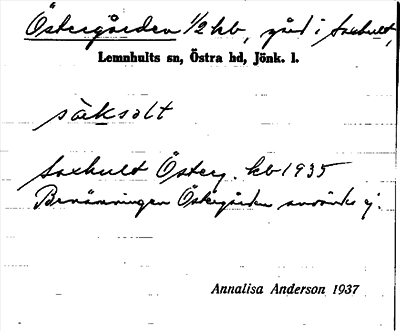 Östergården 1/2 kb, gård i Saxhult,
Lemnhults sn, Östra hd, Jönk. l.
sàksolt
Saxhult Österg. kb 1935
Benämningen Östergården användes ej.
Annalisa Anderson 1937